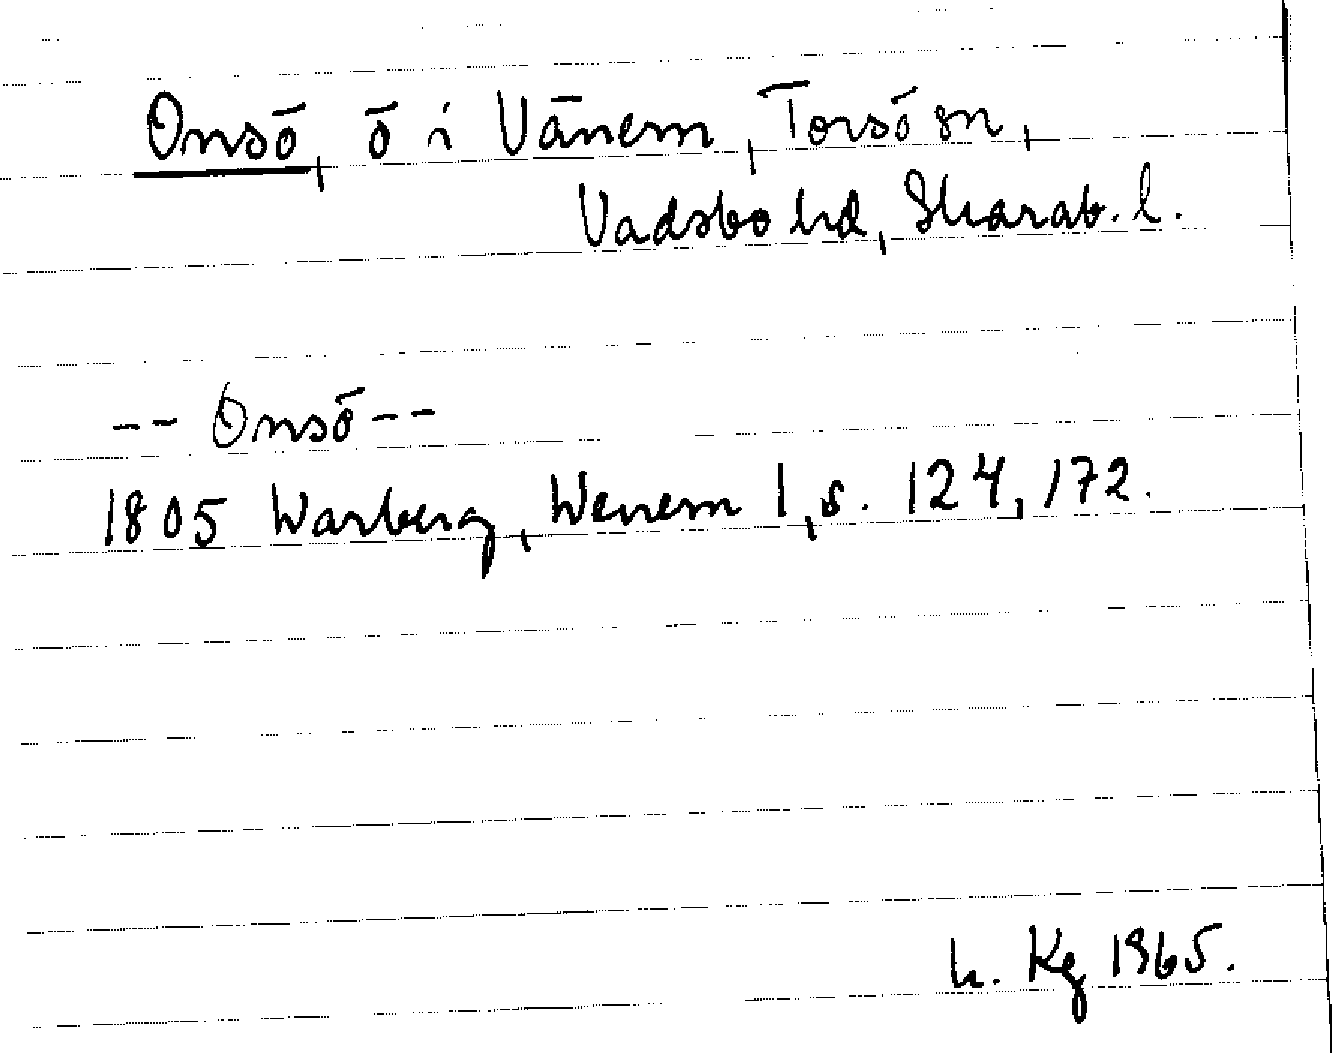 Onsö, ö i Vänern, Torsö sn,
Vadsbo hd, Skarab. l.
-- Onsö --
1805 Warberg, Wenern 1, s. 124, 172.
h. Kg 1965.